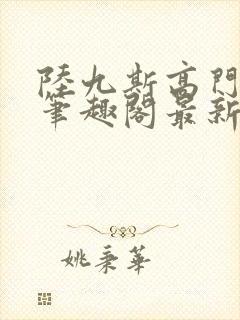 陸九斯高門
筆趣閣最新
姚秉華